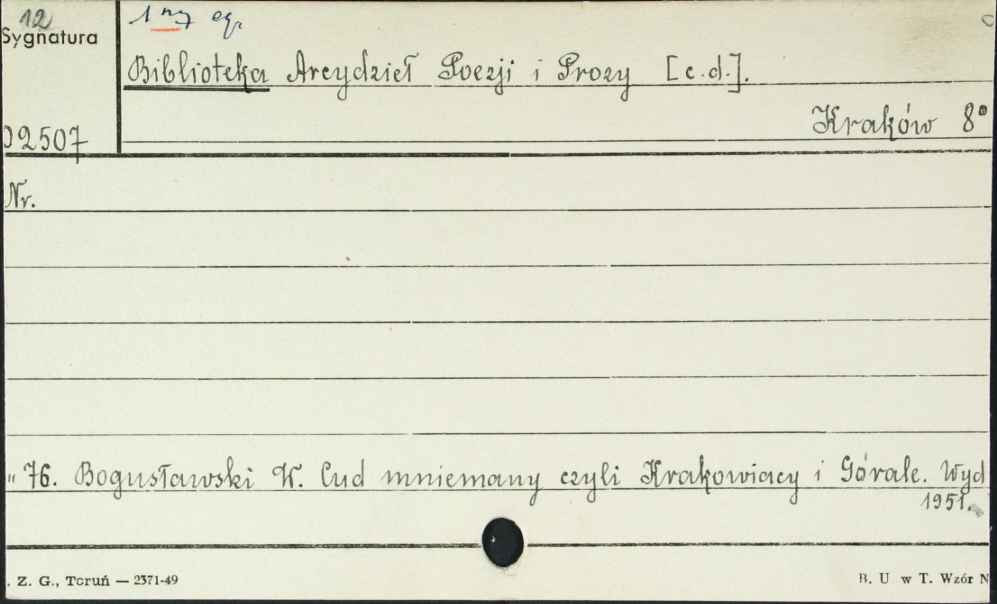 12
1 eg.
Sygnatura
Biblioteka Arcydzieł Poezji i Prozy [c.d.].
Kraków 8°
02507
Nr.
" 76. Bogusławski W. Cud mniemany czyli Krakowiacy i Górale. Wyd
1951.
. Z. G., Toruń — 2371-49
B. U w T. Wzór N